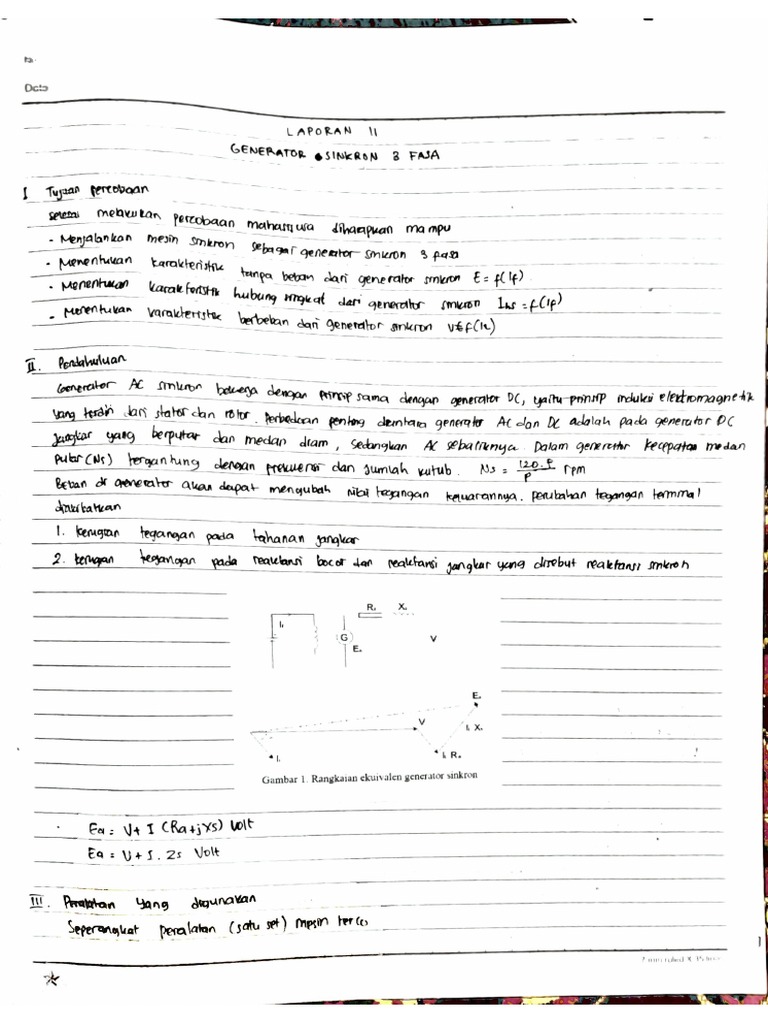 Date
LAPORAN 11
GENERATOR SINKRON 3 FASA
I Tujuan percobaan
Selesai melakukan percobaan mahasiswa diharapkan mampu
- Menjalankan mesin sinkron sebagai generator sinkron 3 fasa
- Menentukan karakteristik tanpa beban dari generator sinkron E = f(If)
- Menentukan karakteristik hubung singkat dari generator sinkron Ihs = f(If)
- Menentukan karakteristik berbeban dari generator sinkron
II. Pendahuluan
Generator AC sinkron bekerja dengan prinsip sama dengan generator DC, yaitu prinsip induksi elektromagnetik
yang terdiri dari stator dan rotor. Perbedaan penting diantara generator AC dan DC adalah pada generator DC
jangkar yang berputar dan medan diam, sedangkan AC sebaliknya. Dalam generator kecepatan medan
putar (Ns) tergantung dengan frekuensi dan jumlah kutub. Ns = 120.f / P rpm
Beban di generator akan dapat mengubah nilai tegangan keluarannya. perubahan tegangan terminal
diakibatkan
1. kerugian tegangan pada tahanan jangkar
2. kerugian tegangan pada reaktansi bocor dan reaktansi jangkar yang disebut reaktansi sinkron
Rₐ Xₛ
G
Eₐ
V
Eₐ
V
Gambar 1. Rangkaian ekuivalen generator sinkron
Ea = V + I (Ra + jXs) Volt
Ea = V + I . Zs Volt
III. Peralatan yang digunakan
Seperangkat peralatan (satu set) mesin